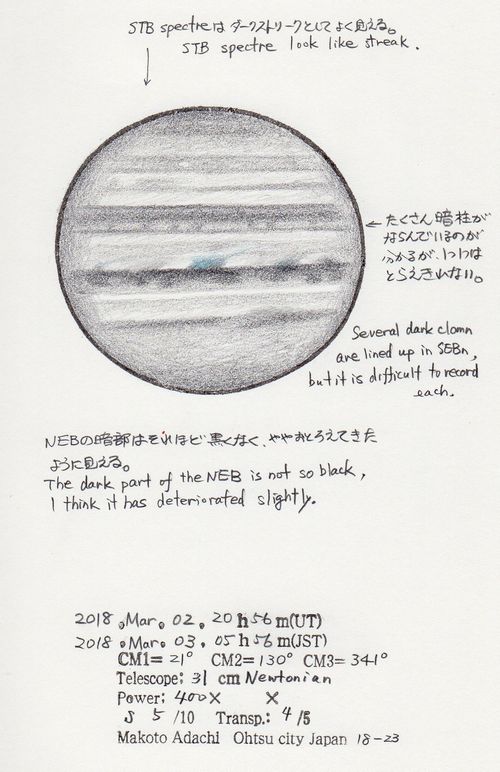 STB spectreはダークストリークとしてよく見える。
STB spectre look like streak.
たくさん暗柱が
ならんでいるのが
分かるが、1つ1つは
とらえきれない。
Several dark clomn
are lined up in SEBn,
but it is difficult to record
each.
NEBの暗部はそれほど黒くなく、ややおとろえてきた
ように見える。
The dark part of the NEB is not so black,
I think it has deteriorated slightly.
2018 。Mar。02。20 h 56 m(UT)
2018 。Mar。03。05 h 56 m(JST)
CM1= 21° CM2= 130° CM3= 341°
Telescope: 31 cm Newtonian
Power: 400× ×
S 5 /10 Transp.: 4 /5
Makoto Adachi Ohtsu city Japan 18-23